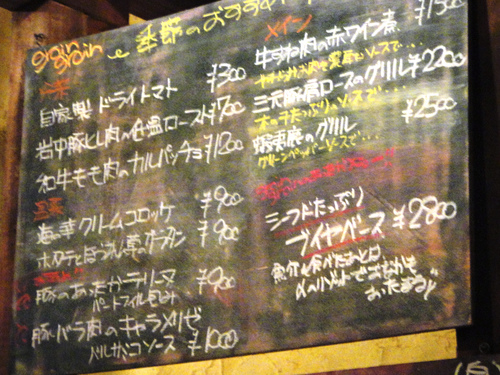 季節のおすすめ
自家製 ドライトマト ¥300
岩中豚ヒレ肉の低温ロースト ¥700
和牛モモ肉のカルパッチョ ¥1200
海の華クリームコロッケ ¥900
ホタテとほうれん草のグラタン ¥900
豚のあったかテリーヌ ¥900
パートフィロ包み
豚バラ肉のキャラメリゼ
バルサミコソース ¥1000
メイン
牛ほね肉の赤ワイン煮
三元豚肩ロースのグリル ¥2200
蝦夷鹿のグリル ¥2500
グリーンペッパーソースで・・・
シーフードたっぷり
ブイヤベース ¥2800
魚介を食べたあとは
〆のリゾットでおなかも